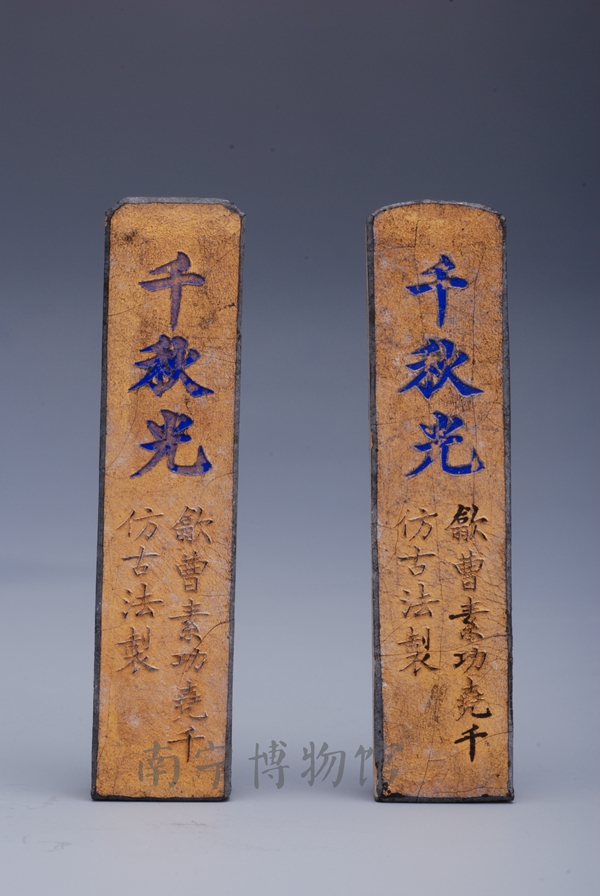 千秋光
歙曹素功堯千
仿古法製
千秋光
歙曹素功堯千
仿古法製
南宁博物馆